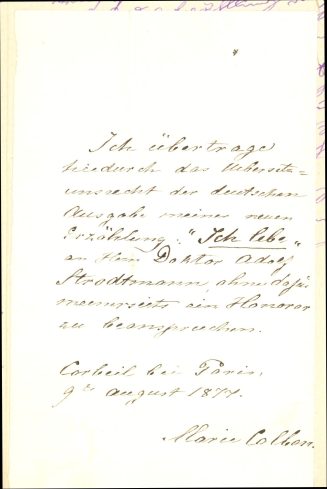 Ich übertrage
hiedurch das Uebersetz=
unsrecht der deutschen
Ausgabe meiner neuen
Erzählung: "Ich lebe"
an Herrn Doktor Adolf
Strodtmann, ohne dafür
meinerseits ein Honorar
zu beanspruchen.
Corbeil bei Paris,
9te August 1877.
Marie Colban.